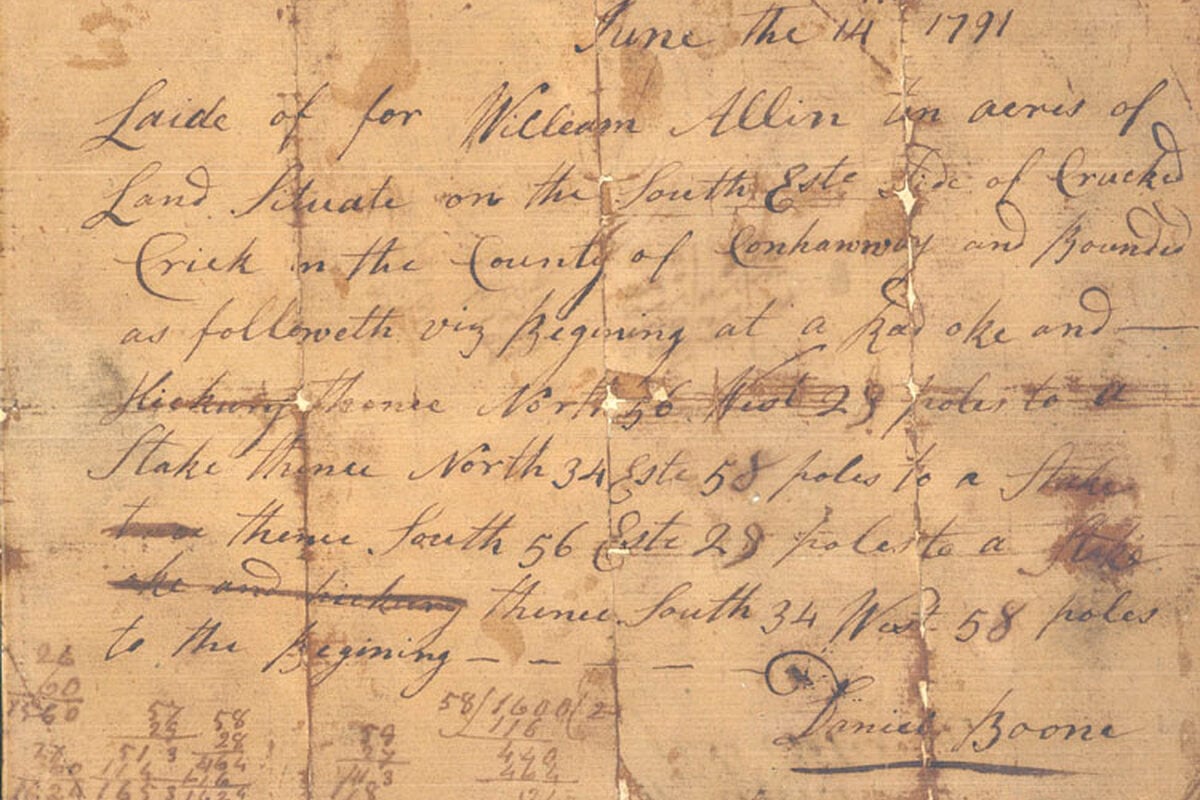 June the 14 1791
Laide of for William Allin ten acris of
Land Situate on the South Este Side of Crucked
Crick in the County of Conhawway and Bounded
as followeth viz Begining at a Rad oke and —
Hickury thence North 56 West 28 poles to a
Stake thence North 34 Este 58 poles to a Stake
thence South 56 Este 28 poles to a Stake
oke and hickury thence South 34 West 58 poles
to the Begining — – – — — —
Daniel Boone
26
60
1560
58
28
464
116
1624
58/1600(2
116
440